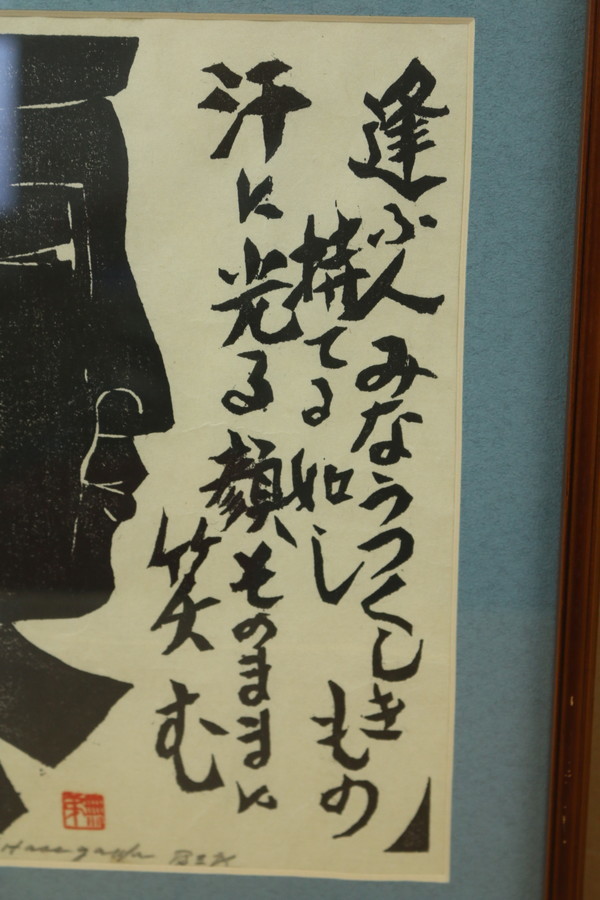 逢ふ人みなうつくしきもの
てる如し
汗に光る顔そのままに
笑む